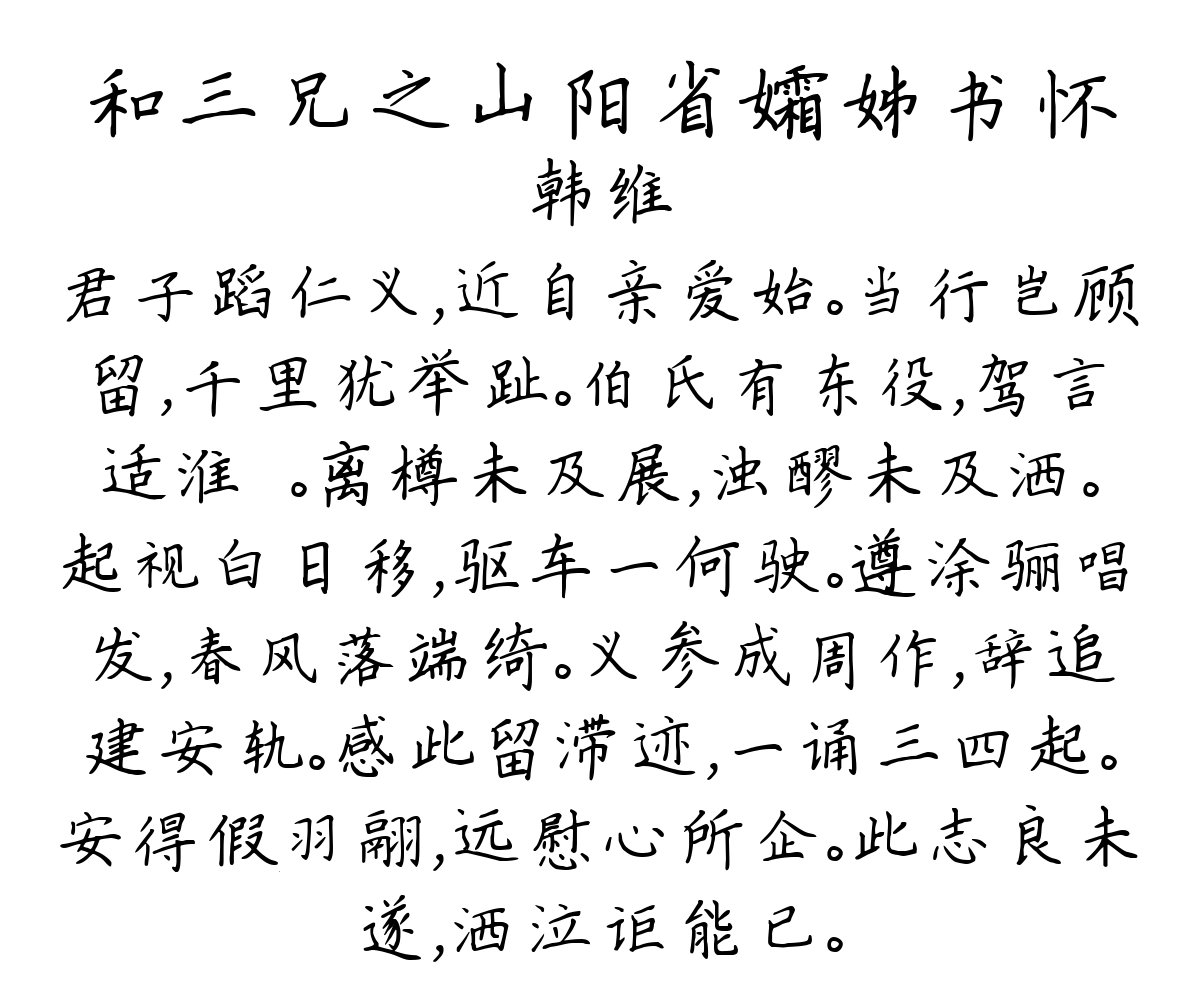 和三兄之山阳省孀姊书怀
韩维
君子蹈仁义,近自亲爱始。当行岂顾
留,千里犹举趾。伯氏有东役,驾言
适淮 。离樽未及展,浊醪未及洒。
起视白日移,驱车一何驶。遵涂骊唱
发,春风落端绮。义参成周作,辞追
建安轨。感此留滞迹,一诵三四起。
安得假羽翮,远慰心所企。此志良未
遂,洒泣讵能已。